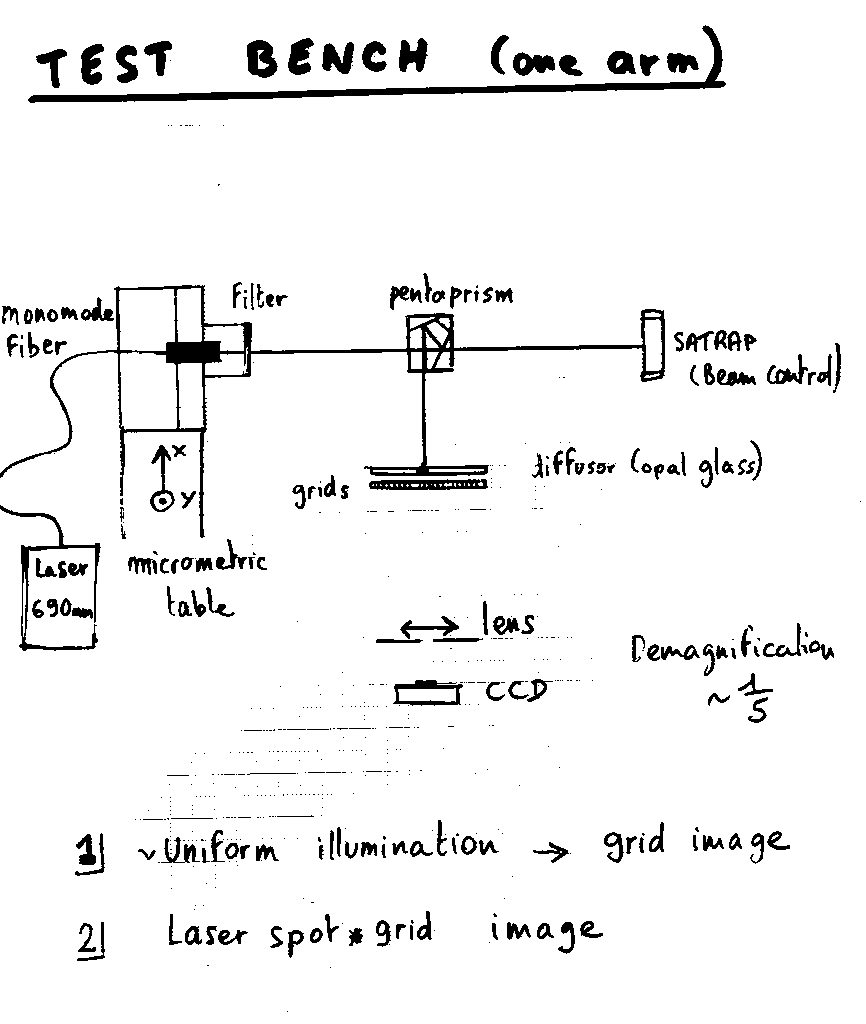 TEST BENCH (one arm)
monomode
fiber
Filter
pentaprism
SATRAP
(Beam control)
X
Y
grids
diffusor (opal glass)
Laser
690nm
micrometric
table
lens
CCD
Demagnification
~ 1/5
1| ~ Uniform illumination → grid image
2| Laser spot * grid image